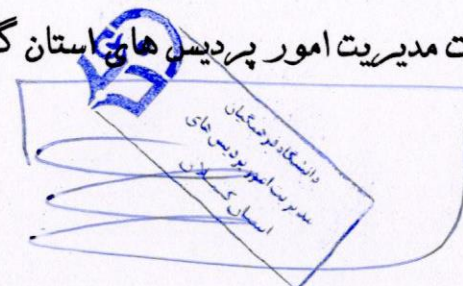 ت مدیریت امور پردیس های استان گ
دانشگاه فرهنگیان
مدیریت امور پردیس های
استان گیلان